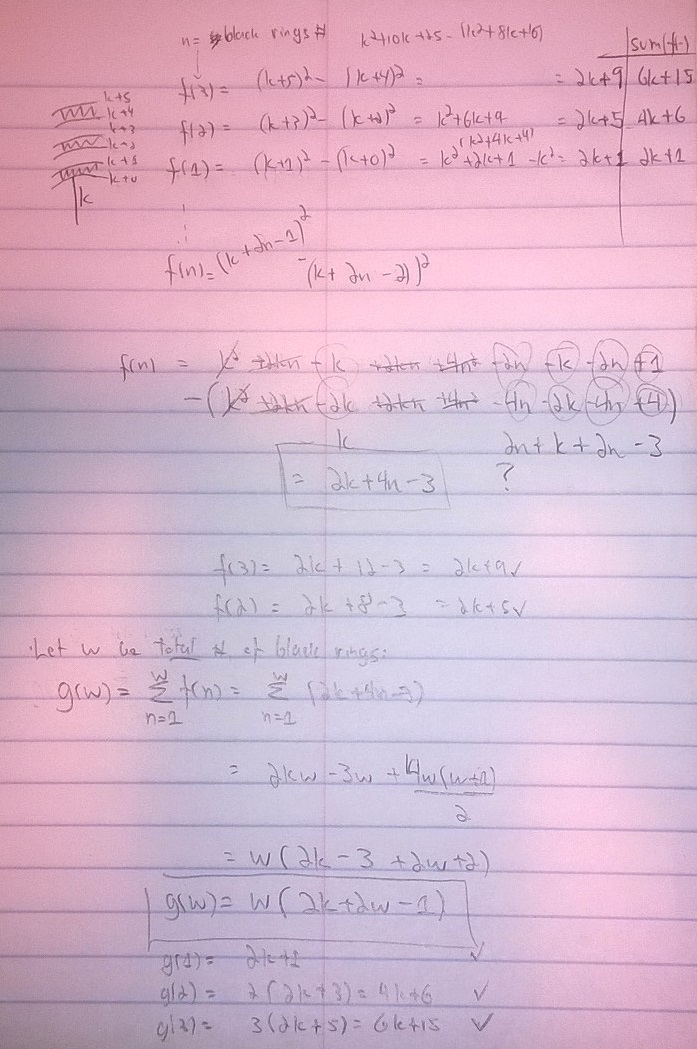 n = black rings #
k²+10k+25 - (k²+8k+16)
sum(f(·))
f(3) = (k+5)² - (k+4)² = = 2k+9 6k+15
f(2) = (k+3)² - (k+2)² = k²+6k+9 = 2k+5 4k+6
-(k²+4k+4)
f(1) = (k+1)² - (k+0)² = k²+2k+1 -k² = 2k+1 2k+1
k+5
k+4
k+3
k+2
k+1
k+0
k
f(n) = (k+2n-1)²
-(k+2n-2))²
f(n) = k² +2kn -k +2kn +4n² -2n -k -2n +1
-(k² +2kn -2k +2kn +4n² -4n -2k -4n +4)
k 2n+k+2n-3
= 2k+4n-3 ?
f(3) = 2k+12-3 = 2k+9 ✓
f(2) = 2k+8-3 = 2k+5 ✓
Let w be total # of black rings:
g(w) = w∑n=1 f(n) = w∑n=1 (2k+4n-3)
= 2kw -3w + 4w(w+1)
2
= w(2k-3+2w+2)
g(w) = w(2k+2w-1)
g(1) = 2k+1 ✓
g(2) = 2(2k+3) = 4k+6 ✓
g(3) = 3(2k+5) = 6k+15 ✓